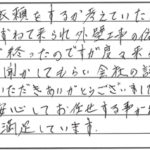 依頼をするか考えていた
ずねて来られ外壁工事の
が終ったのですが度々来ら
聞かしてもらい会社の
いただきありがとうございまし
安心してお任せする事が
満足しています.